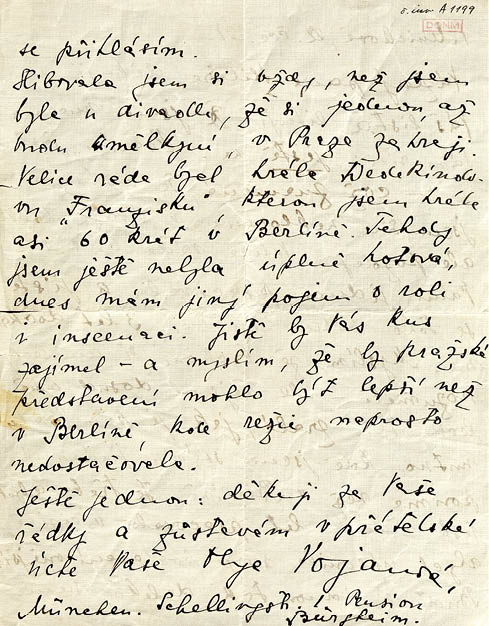 č. inv. A 1199
DONM
se přihlásím.
Slibovala jsem si vždy, než jsem
byla u divadla, že si jednou, až
budu umělkyní, v Praze zahraji.
Velice ráda bych hrála Wedekindo-
vu "Franzisku" kterou jsem hrála
asi 60 krát v Berlíně. Tehdy
jsem ještě nebyla úplně hotová,
dnes mám jiný pojem o roli
i inscenaci. Jistě by Vás kus
zajímal – a myslím, že by pražské
představení mohlo být lepší než
v Berlíně, kde režie naprosto
nedostačovala.
Ještě jednou: děkuji za Vaše
řádky a zůstávám v přátelské
úctě Vaše Olga Vojanová,
München. Schellingstr. 1 Pension
Bürgheim.